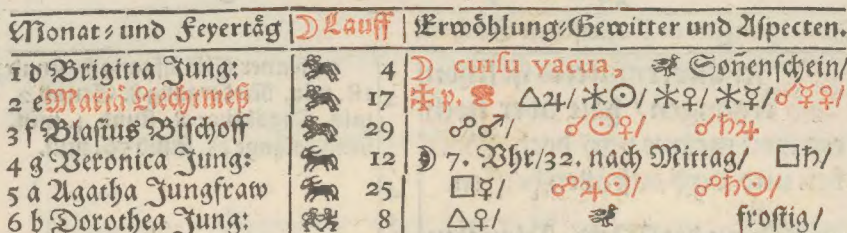 Monat⸗ und Feyertäg | ☽ Lauff | Erwöhlung⸗Gewitter und Aſpecten.
1 d Brigitta Jung: 4 ☽ curſu vacua, Soñenſchein/
2 e Mariä Liechtmeß 17 p. △♃/ ⚹☉/ ⚹♀/ ⚹☿/ ☌☿♀/
3 f Blaſius Biſchoff 29 ☍♂/ ☌☉♀/ ☌♄♃
4 g Veronica Jung: 12 ☽ 7. Vhr/32. nach Mittag/ □♄/
5 a Agatha Jungfraw 25 □☿/ ☍♃☉/ ☍♄☉/
6 b Dorothea Jung: 8 △♀/ froſtig/